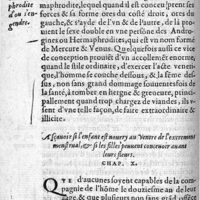 phrodite
d'où s'en-
gendre.
maphrodite, lequel quand il est conceu: prent ses
forces & sa forme ores du costé droit, ores du
gauche, & s'ayde de l'vn & de l'autre, de là pour
tenant le sexe double en vne persone des Andro
gines ou Hermaphrodites, qui est vn nom formé
de Mercure & Venus. Quelquefois aussi ce vice
de conception prouiēt d'vn accollemēt enorme,
quand le stile ordinaire, d'exercer l'acte vene-
rien, l'homme se couche dessous, & la féme des-
sus, non sans grand dommage souuentesfois de
la santé, sombrer en hargne & greueure, princi-
palement quand trop chargez de viandes, ils
vsent de telle façon, de faire extraordinaire &
illicite.
Asçauoir si l'enfant est nourry au ventre de l'excrement
menstrual, & si les filles peuuent conceuoir auant
leurs fleurs.
CHAP. X.
QVe d'aucunes soyent capables de la com-
pagnie de l'hôme le douziesme an de leur
age, & que plusieurs non sans grad